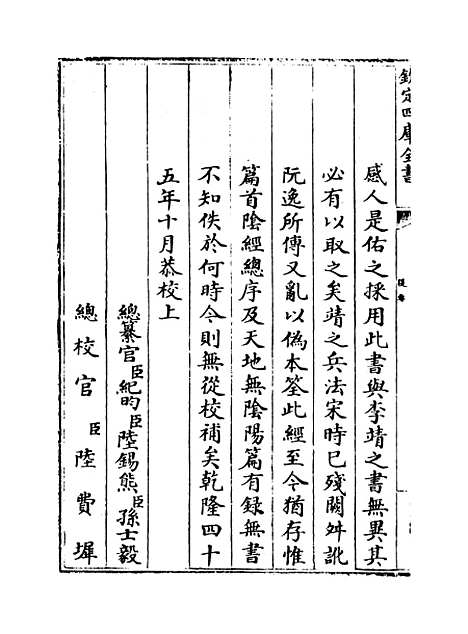 欽定四庫全書
提要
感人是佑之採用此書與李靖之書無異其
必有以取之矣靖之兵法宋時已殘闕舛訛
阮逸所傳又亂以偽本筌此經至今猶存惟
篇首陰經總序及天地無陰陽篇有録無書
不知佚於何時今則無從校補矣乾隆四十
五年十月恭校上
總纂官臣紀昀臣陸錫熊臣孫士毅
總校官臣陸費墀